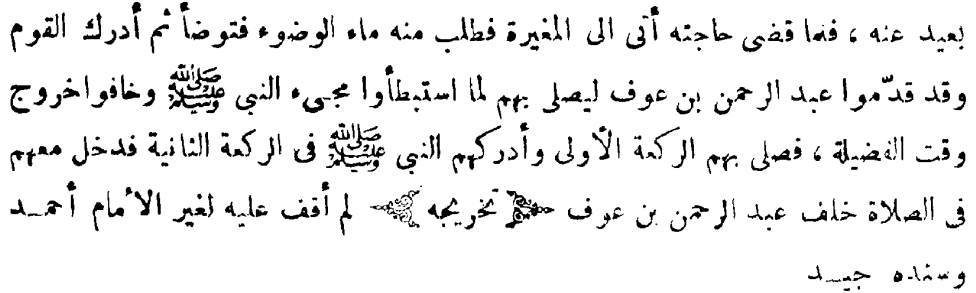 بعيد عنه ، فلما قضى حاجته أتى الى المغيرة فطلب منه ماء الوضوء فتوضأ ثم أدرك القوم
وقد قدّموا عبد الرحمن بن عوف ليصلى بهم لما استبطأوا مجىء النبى ﷺ وخافوا خروج
وقت الفضيلة ، فصلى بهم الركعة الأولى وأدركهم النبى ﷺ فى الركعة الثانية فدخل معهم
فى الصلاة خلف عبد الرحمن بن عوف ﴿ تخريجه ﴾ لم أقف عليه لغير الأمام أحمد
وسنده جيد